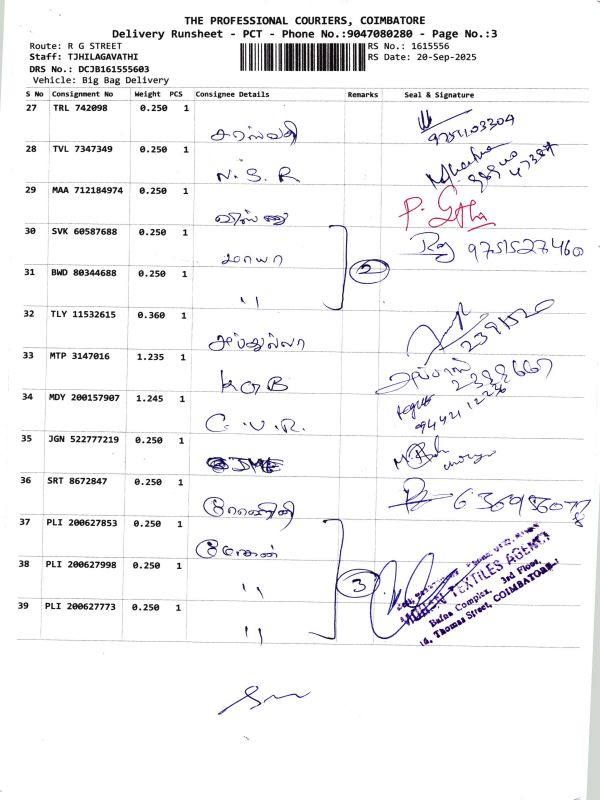 THE PROFESSIONAL COURIERS, COIMBATORE
Delivery Runsheet - PCT - Phone No.:9047080280 - Page No.:3
Route: R G STREET RS No.: 1615556
Staff: TJHILAGAVATHI RS Date: 20-Sep-2025
DRS No.: DCJB161555603
Vehicle: Big Bag Delivery
S No Consignment No Weight PCS Consignee Details Remarks Seal & Signature
27 TRL 742098 0.250 1
சரஸ்வதி 9751103304
28 TVL 7347349 0.250 1
N. S. R
29 MAA 712184974 0.250 1
விஸ்ணு P. Getha
30 SVK 60587688 0.250 1
மாயா 2 Raj 9751527460
31 BWD 80344688 0.250 1
"
32 TLY 11532615 0.360 1
அப்துல்லா 2391520
33 MTP 3147016 1.235 1
KGB
34 MDY 200157907 1.245 1
C. V. R.
35 JGN 522777219 0.250 1
36 SRT 8672847 0.250 1
37 PLI 200627853 0.250 1
38 PLI 200627998 0.250 1
" 3
39 PLI 200627773 0.250 1
"
TEXTILES AGENCY
Bafna Complex, 3rd Floor,
Thomas Street, COIMBATORE-1